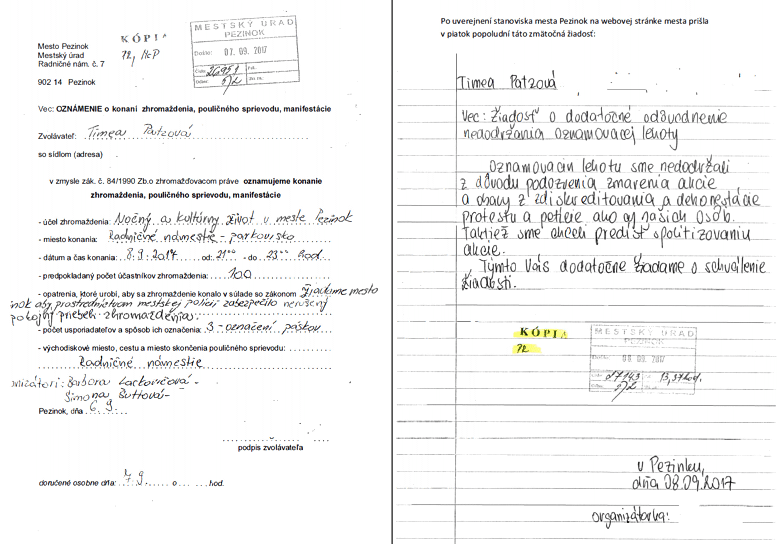 Mesto Pezinok
Mestský úrad
Radničné nám. č. 7
902 14 Pezinok
KÓPIA
MESTSKÝ ÚRAD
PEZINOK
Došlo: 07. 09. 2017
Vec: OZNÁMENIE o konaní zhromaždenia, pouličného sprievodu, manifestácie
Zvolávateľ: Timea Patzová
so sídlom (adresa)
v zmysle zák. č. 84/1990 Zb.o zhromažďovacom práve oznamujeme konanie
zhromaždenia, pouličného sprievodu, manifestácie
- účel zhromaždenia: Nočný a kultúrny život v meste Pezinok
- miesto konania: Radničné námestie - parkovisko
- dátum a čas konania: 8.9.2017 od: 21⁰⁰ - do 23⁰⁰ hod
- predpokladaný počet účastníkov zhromaždenia: 100
- opatrenia, ktoré urobí, aby sa zhromaždenie konalo v súlade so zákonom žiadame mesto
inok aby prostredníctvom mestskej polície zabezpečilo nerušený
pokojný priebeh zhromaždenia.
- počet usporiadateľov a spôsob ich označenia: 3 - označení páskou
- východiskové miesto, cestu a miesto skončenia pouličného sprievodu:
Radničné námestie
Barbora Lackovičová -
Simona
Pezinok, dňa 6.9.
podpis zvolávateľa
doručené osobne dňa: 7.9. o hod.
Po uverejnení stanoviska mesta Pezinok na webovej stránke mesta prišla
v piatok popoludní táto zmätočná žiadosť:
Timea Patzová
Vec: Žiadosť o dodatočné odôvodnenie
nedodržania oznamovacej lehoty
Oznamovaciu lehotu sme nedodržali
z dôvodu podozrenia zmarenia akcie
a obavy z zdiskreditovania a dehonestácie
protestu a petície ako aj našich osôb.
Taktiež sme chceli predísť spolitizovaniu
akcie.
Týmto Vás dodatočne žiadame o schválenie
žiadosti.
KÓPIA
MESTSKÝ ÚRAD
PEZINOK
08. 09. 2017
13,37 hod.
v Pezinku,
dňa 08.09.2017
organizátorka: